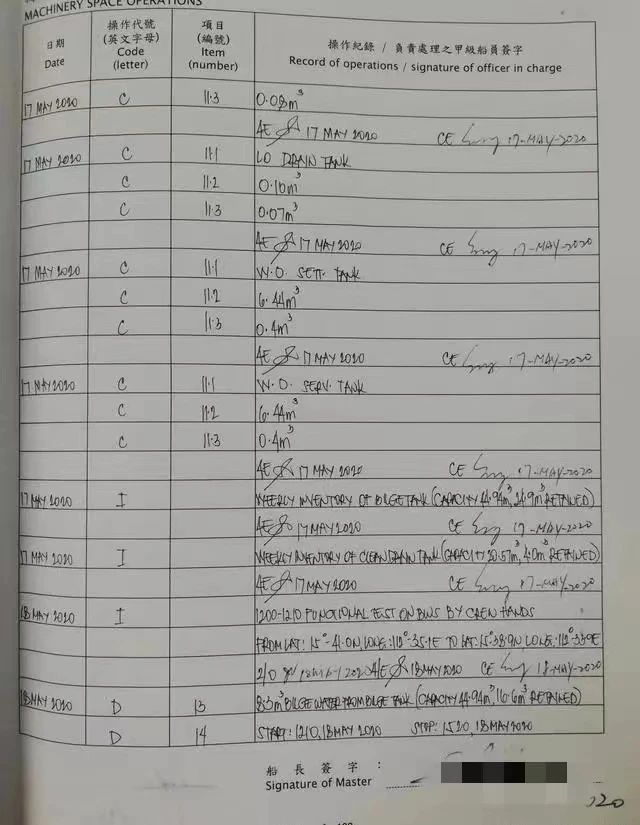 MACHINERY SPACE OPERATIONS
日期 Date 操作代號 (英文字母) Code (letter) 項目 (編號) Item (number) 操作紀錄 / 負責處理之甲級船員簽字 Record of operations / signature of officer in charge
17 MAY 2020 C 11.3 0.08m³
4E 17 MAY 2020 CE 17-MAY-2020
17 MAY 2020 C 11.1 LO DRAIN TANK
C 11.2 0.10m³
C 11.3 0.07m³
4E 17 MAY 2020 CE 17-MAY-2020
17 MAY 2020 C 11.1 W.O. SETT. TANK
C 11.2 6.44m³
C 11.3 0.4m³
4E 17 MAY 2020 CE 17-MAY-2020
17 MAY 2020 C 11.1 W.O. SERV. TANK
C 11.2 6.44m³
C 11.3 0.4m³
4E 17 MAY 2020 CE 17-MAY-2020
17 MAY 2020 I WEEKLY INVENTORY OF BILGE TANK (CAPACITY 44.94m³, 24.9m³ RETAINED)
4E 17 MAY 2020 CE 17-MAY-2020
17 MAY 2020 I WEEKLY INVENTORY OF CLEAN DRAIN TANK (CAPACITY 20.57m³, 4.0m³ RETAINED)
4E 17 MAY 2020 CE 17-MAY-2020
18 MAY 2020 I 1200-1210 FUNCTIONAL TEST ON BWS BY CREW HANDS
FROM LAT: 15°-41.0N, LONG: 112°-35.1E TO LAT: 15°38.9N, LONG: 112°33.9E
2/0 4/E 18 MAY 2020 CE 18-MAY-2020
18 MAY 2020 D 13 8.3m³ BILGE WATER FROM BILGE TANK (CAPACITY 44.94m³, 16.6m³ RETAINED)
D 14 START: 1210, 18 MAY 2020 STOP: 1520, 18 MAY 2020
船長簽字 :
Signature of Master